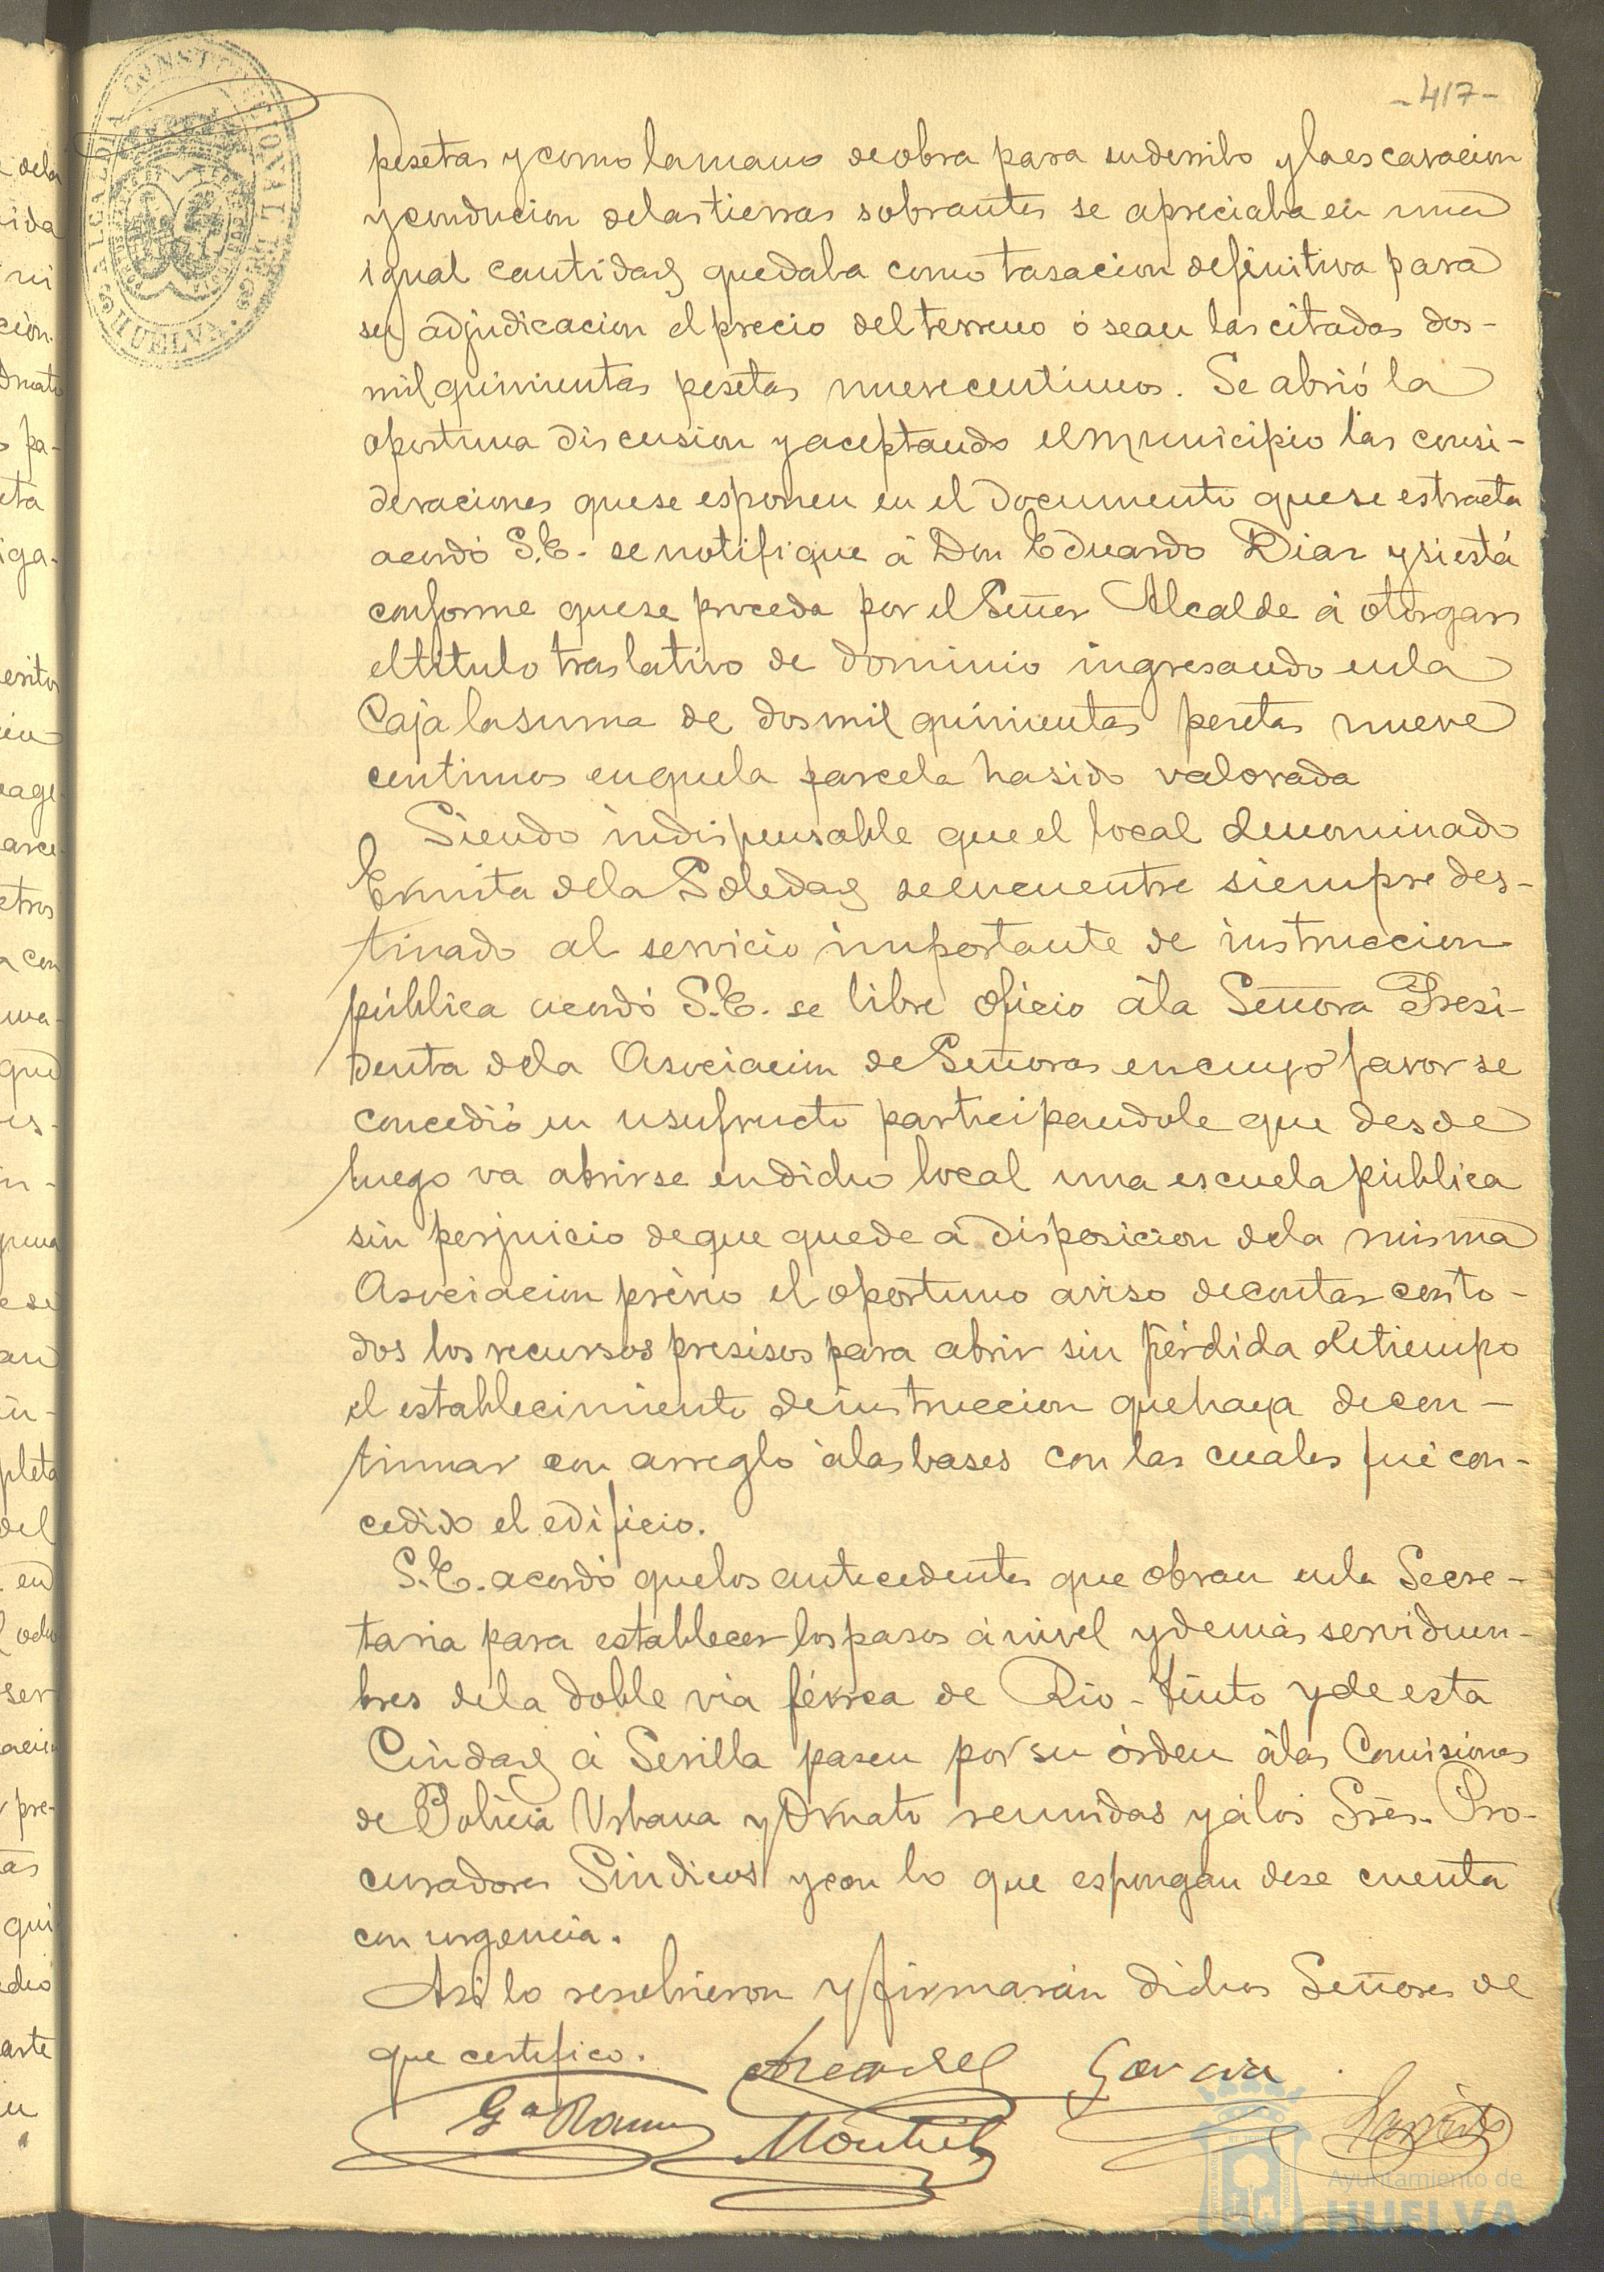 -417-
ALCALDIA CONSTITUCIONAL DE HUELVA
pesetas y como la mano de obra para su derribo y la escavacion
y conducion de las tierras sobrantes se apreciaba en una
igual cantidad quedaba como tasacion definitiva para
su adjudicacion el precio del terreno ó sean las citadas dos-
mil quinientas pesetas nueve centimos. Se abrió la
oportuna discusion y aceptando el municipio las consi-
deraciones que se esponen en el documento que se estracta
acordó S.E. se notifique á Don Eduardo Diaz y si está
conforme que se proceda por el Señor Alcalde á otorgar
el titulo traslativo de dominio ingresando en la
Caja la suma de dos mil quinientas pesetas nueve
centimos en que la parcela ha sido valorada
Siendo indispensable que el local denominado
Ermita de la Soledad se encuentre siempre des-
tinado al servicio importante de instruccion
pública acordó S.E. se libre oficio á la Señora Presi-
denta de la Asociacion de Señoras en cuyo favor se
concedió en usufructo participandole que desde
luego va abrirse en dicho local una escuela pública
sin perjuicio de que quede á disposicion de la misma
Asociacion prévio el oportuno aviso de contar con to-
dos los recursos presisos para abrir sin pérdida de tiempo
el establecimiento de instruccion que haya de con-
tinuar con arreglo á las bases con las cuales fué con-
cedido el edificio.
S.E. acordó que los antecedentes que obran en la Secre-
taria para establecer los pasos á nivel y demás servidum-
bres de la doble via férrea de Rio-Tinto y de esta
Ciudad á Sevilla pasen por su órden á las Comisiones
de Policia Urbana y Ornato reunidas y á los Sres. Pro-
curadores Sindicos y con lo que espongan dese cuenta
con urgencia.
Asi lo resolvieron y firmarán dichos Señores de
que certifico.
Garcia
Gª Ramos
Montiel
Ayuntamiento de
HUELVA